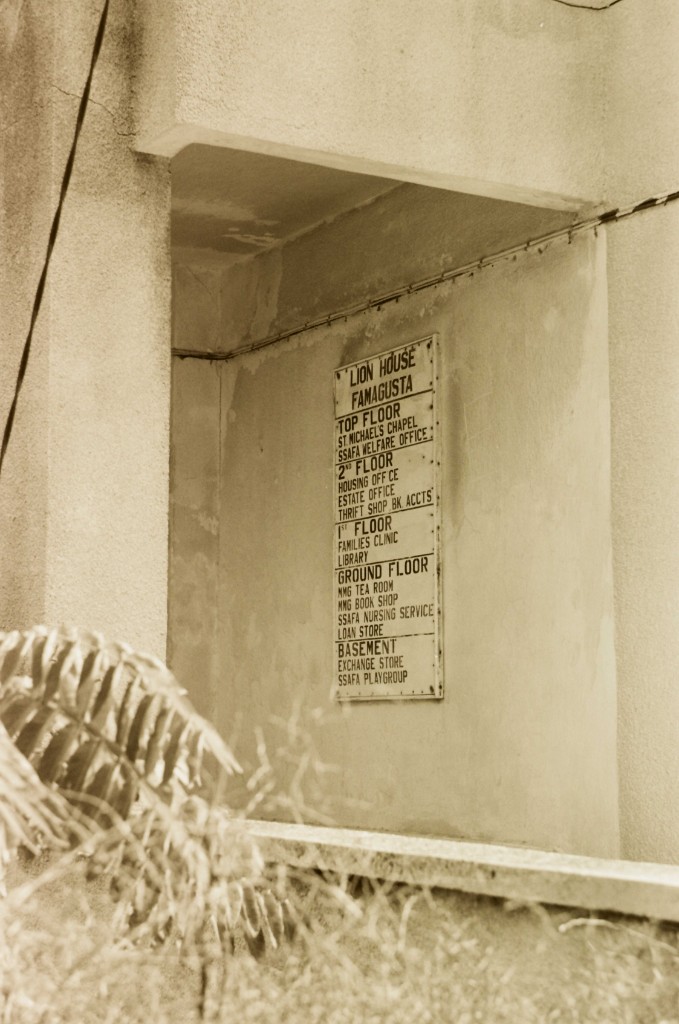 LION HOUSE
FAMAGUSTA
TOP FLOOR
ST. MICHAEL'S CHAPEL
SSAFA WELFARE OFFICE
2ND FLOOR
HOUSING OFF CE
ESTATE OFFICE
THRIFT SHOP BK ACCTS
1ST FLOOR
FAMILIES CLINIC
LIBRARY
GROUND FLOOR
MMG TEA ROOM
MMG BOOK SHOP
SSAFA NURSING SERVICE
LOAN STORE
BASEMENT
EXCHANGE STORE
SSAFA PLAYGROUP